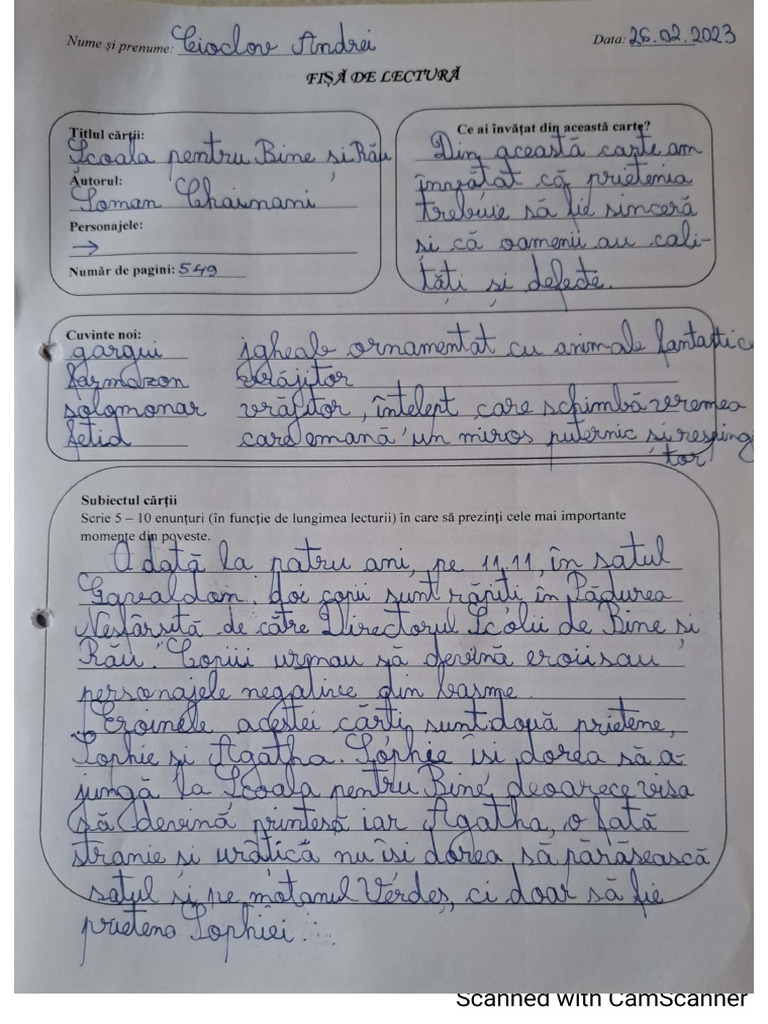 Nume și prenume: Cioclov Andrei Data: 26.02.2023
FIȘĂ DE LECTURĂ
Titlul cărții:
Școala pentru Bine și Rău
Autorul:
Soman Chainani
Personajele:
→
Număr de pagini: 549
Ce ai învățat din această carte?
Din această carte am
învățat că prietenia
trebuie să fie sinceră
și că oamenii au cali-
tăți și defecte.
Cuvinte noi:
gargui jgheab ornamentat cu animale fantastice
farmazon vrăjitor
solomonar vrăjitor, înțelept care schimbă vremea
fetid care emană un miros puternic și resping
tor
Subiectul cărții
Scrie 5 – 10 enunțuri (în funcție de lungimea lecturii) în care să prezinți cele mai importante
momente din poveste.
O dată la patru ani, pe 11.11, în satul
Gavaldon, doi copii sunt răpiți în Pădurea
Nesfârșită de către Directorul Școlii de Bine și
Rău. Copiii urmau să devină eroii sau
personajele negative din basme.
Eroinele acestei cărți sunt două prietene,
Sophie și Agatha. Sophie își dorea să a-
jungă la Școala pentru Bine, deoarece visa
să devină prințesă iar Agatha, o fată
stranie și urâtică nu își dorea să părăsească
satul și pe motanul Verdeș, ci doar să fie
prietena Sophiei.
Scanned with CamScanner